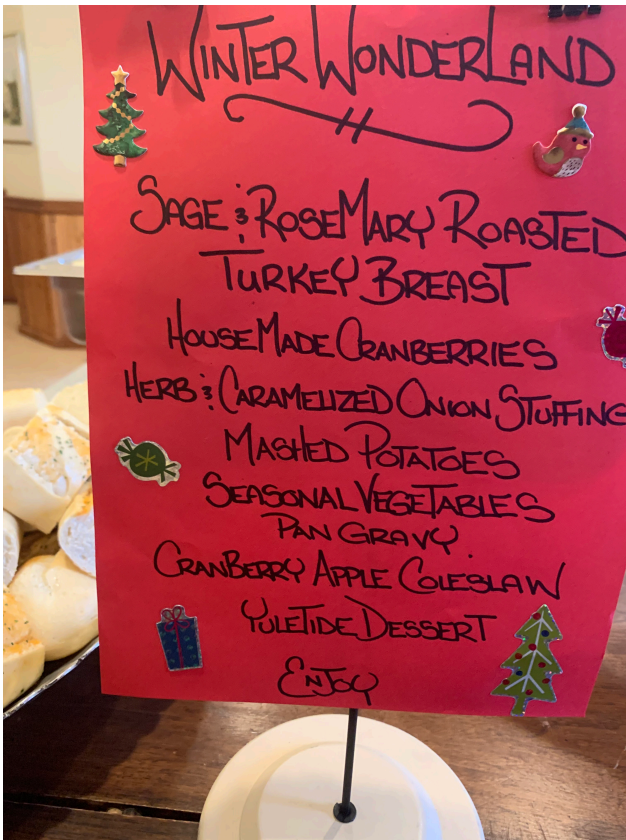 Winter Wonderland
Sage & Rosemary Roasted
Turkey Breast
House Made Cranberries
Herb & Caramelized Onion Stuffing
Mashed Potatoes
Seasonal Vegetables
Pan Gravy
Cranberry Apple Coleslaw
Yuletide Dessert
Enjoy